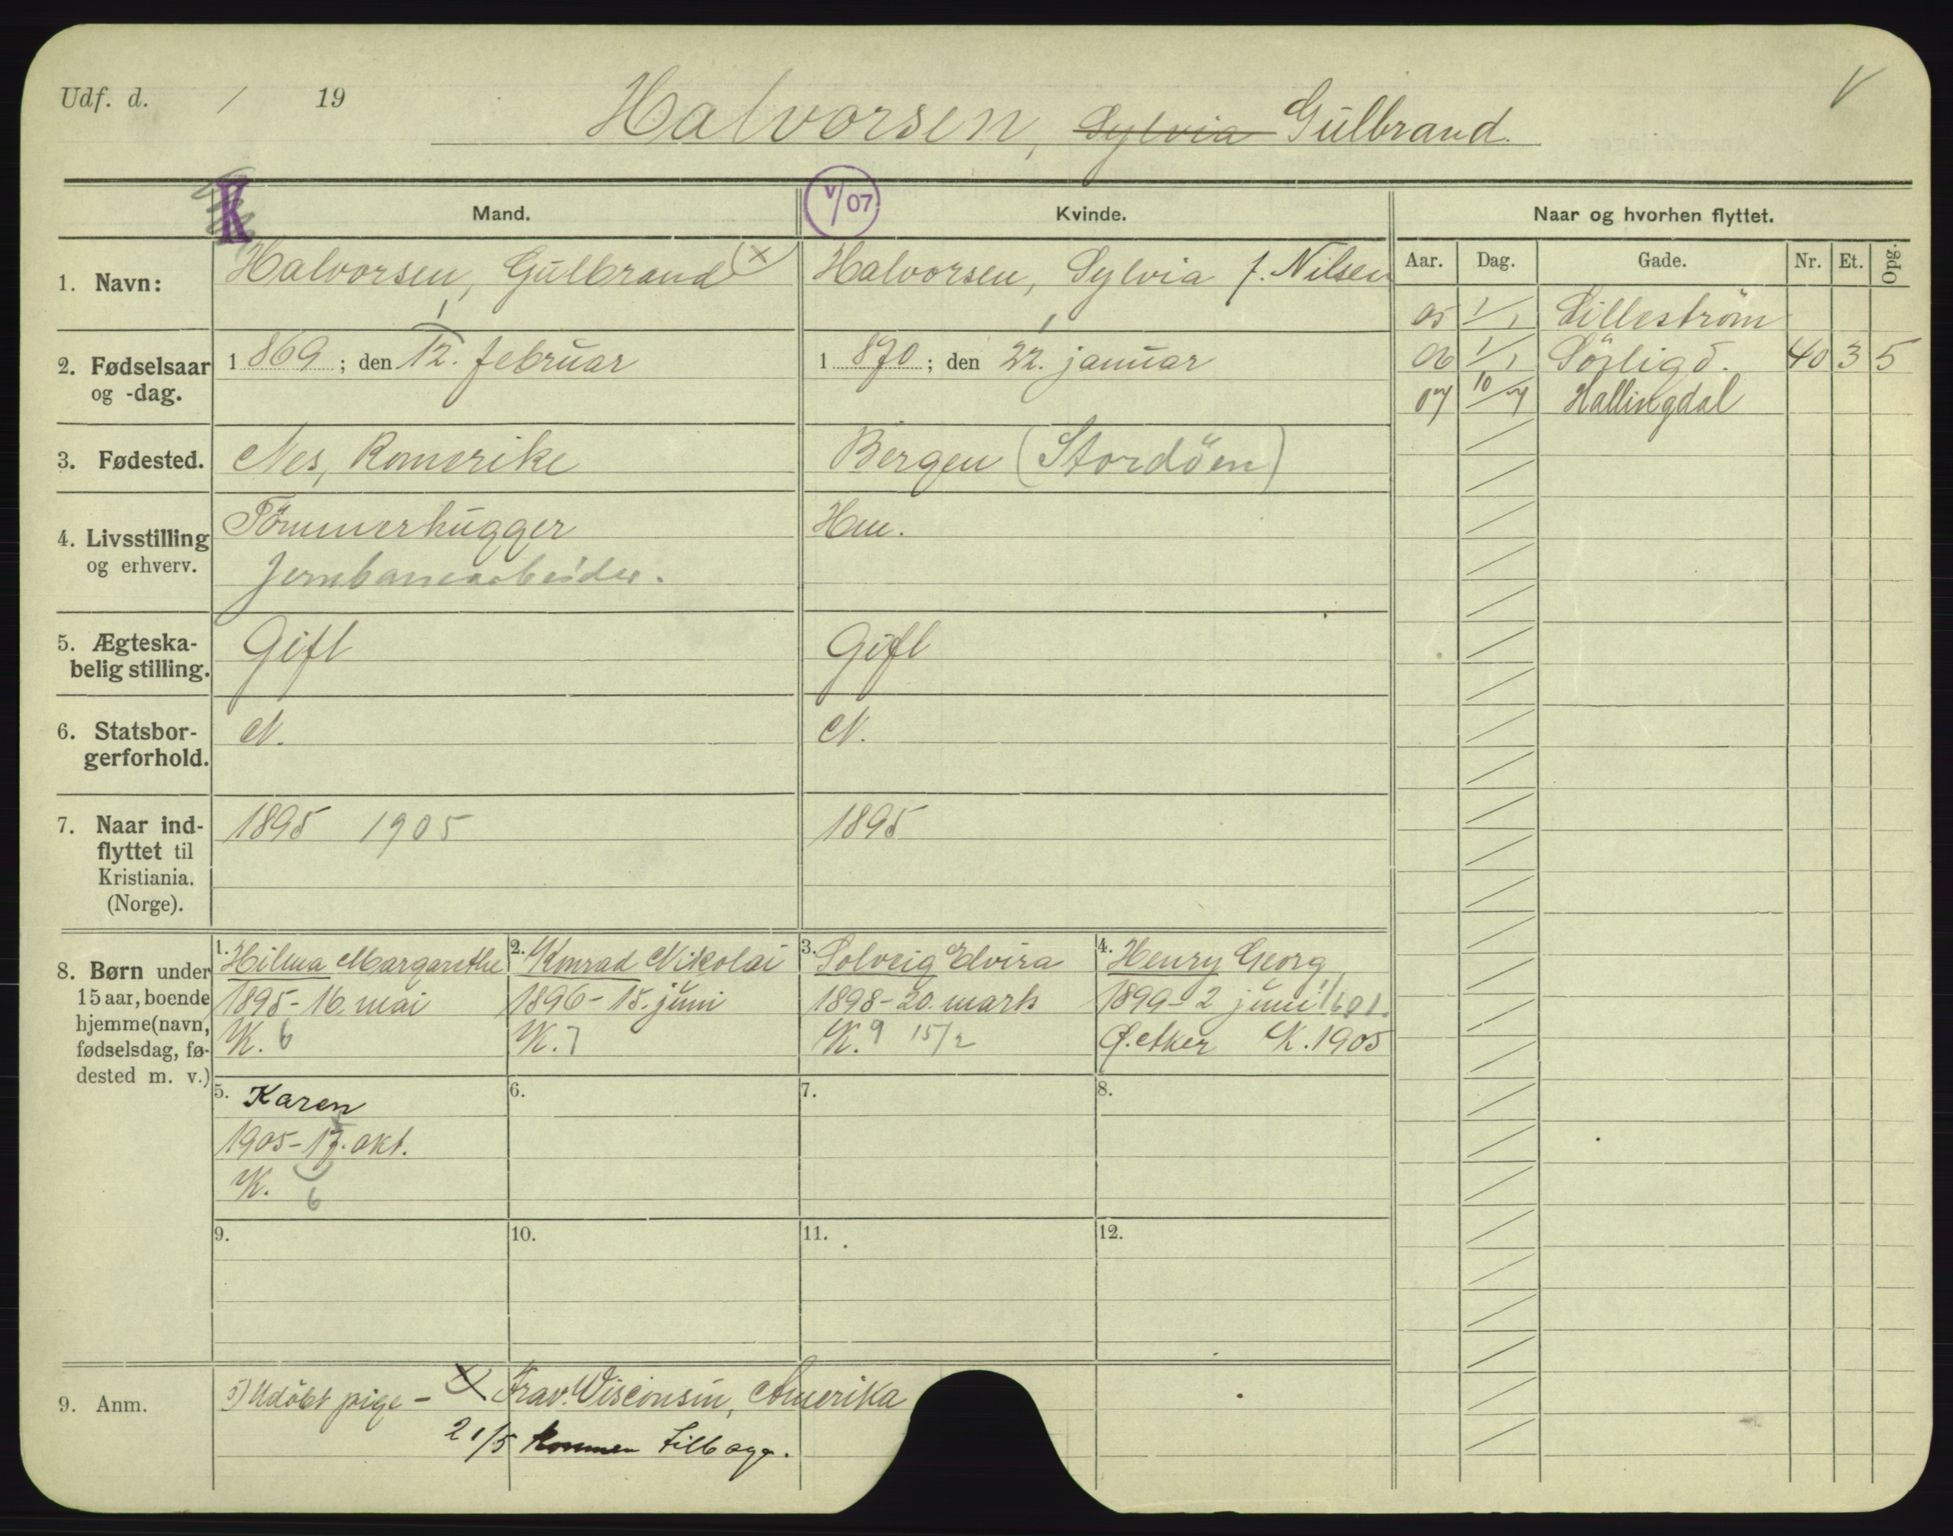 Udf. d. / 19
Halvorsen, Sylvia Gulbrand.
V
K Mand. V/07 Kvinde. Naar og hvorhen flyttet.
Aar. Dag. Gade. Nr. Et. Opg.
1. Navn: Halvorsen, Gulbrand (x) Halvorsen, Sylvia f. Nilsen
05 1/1 Lilleström
2. Fødselsaar og -dag. 1869; den 12. februar 1870; den 22. januar
06 1/1 Sörligd. 40 3 5
07 10/7 Hallingdal
3. Fødested. Nes, Romerike Bergen (Stordöen)
4. Livsstilling og erhverv. Tömmerhugger Hm.
Jernbanearbeider.
5. Ægteska-
belig stilling. Gift Gift
6. Statsbor-
gerforhold. N. N.
7. Naar ind-
flyttet til
Kristiania.
(Norge). 1895 1905 1895
8. Børn under
15 aar, boende
hjemme (navn,
fødselsdag, fø-
dested m. v.)
1. Hilma Margarethe
1895-16. mai
K. 6
2. Konrad Nikolai
1896-15. juni
K. 7
3. Solveig Elvira
1898-20. marts
K. 9 15/2
4. Henry Georg
1899-2 juni
Ø. Aker K. 1905
5. Karen
1905-17. okt.
K. 6
6.
7.
8.
9.
10.
11.
12.
9. Anm. 5) Udöbt pige - x Frav. Wisconsin, Amerika
21/5 kommen tilbage.